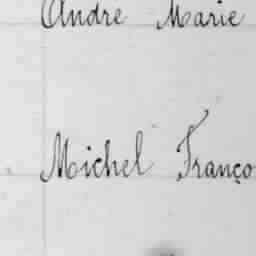 André Marie
Michel Franço